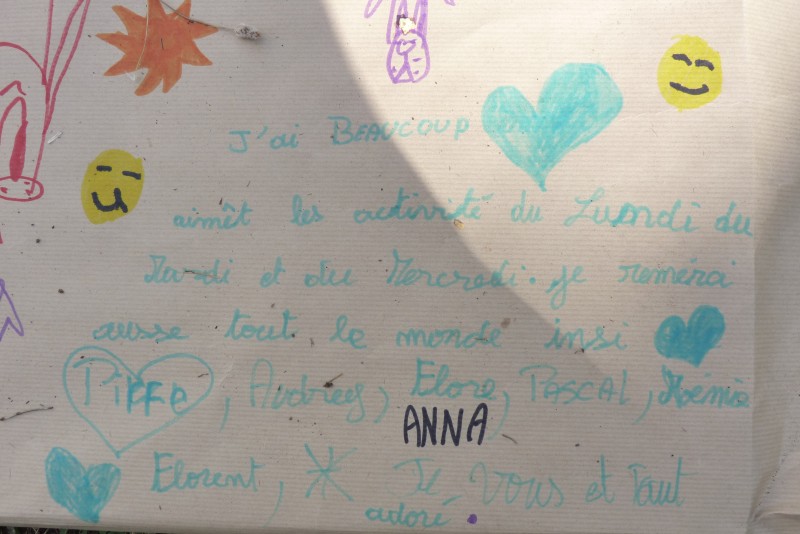 J'ai BEAUCOUP
aimêt les activité du Lundi du
Mardi et du Mercredi. je remérci
ausse tout le monde insi
Pippe, Audrey, Elore, PASCAL, Noémie
ANNA
Florent, Je Vous et Tout
adoré.